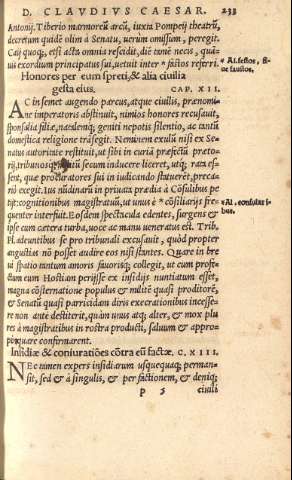 D. CLAVDIVS CAESAR. 233
Antonij. Tiberio marmoreũ arcũ, iuxta Pompeij theatrũ,
decretum quidẽ olim à Senatu, uerùm omissum, peregit.
Caij quoq;, etsi acta omnia rescidit, diẽ tamẽ necis, quã-
uis exordium principatus sui, uetuit inter * factos referri.
* Al. festos, si-
ue fastos.
Honores per eum spreti, & alia ciuilia
gesta eius. CAP. XII.
AC in semet augendo parcus, atque ciuilis, prænomi-
ne imperatoris abstinuit, nimios honores recusauit,
sponsalia filiæ, natalemq; geniti nepotis silentio, ac tantũ
domestica religione trãsegit. Neminem exulũ nisi ex Se-
natus autoritate restituit, ut sibi in curiã præfectũ præto-
rij, tribunosq; secum inducere liceret, utq; rata es-
sent, quæ procuratores sui in iudicando statuerẽt, preca-
riò exegit. Ius nũdinarũ in priuata prædia à Cõsulibus pe-
tijt: cognitionibus magistratuũ, ut unus è * cõsiliarijs fre-
* Al. consulari-
bus.
quenter interfuit. Eosdem spectacula edentes, surgens &
ipse cum cætera turba, uoce ac manu ueneratus est. Trib.
Pl. adeuntibus se pro tribunali excusauit, quòd propter
angustias nõ posset audire eos nisi stantes. Quare in bre
ui spatio tantum amoris fauorisq; collegit, ut cum profe-
ctum eum Hostiam perijsse ex insidijs nuntiatum esset,
magna cõsternatione populus & militẽ quasi proditorẽ,
& Senatũ quasi parricidam diris execrationibus incesse-
re non ante destiterit, quàm unus atq; alter, & mox plu
res à magistratibus in rostra producti, saluum & appro-
pinquare confirmarent.
Insidiæ & coniuratiões cõtra eũ factæ. C. XIII.
NEc tamen expers insidiarum usquequaq; perman-
sit, sed & à singulis, & per factionem, & deniq;
p 5 ciuili